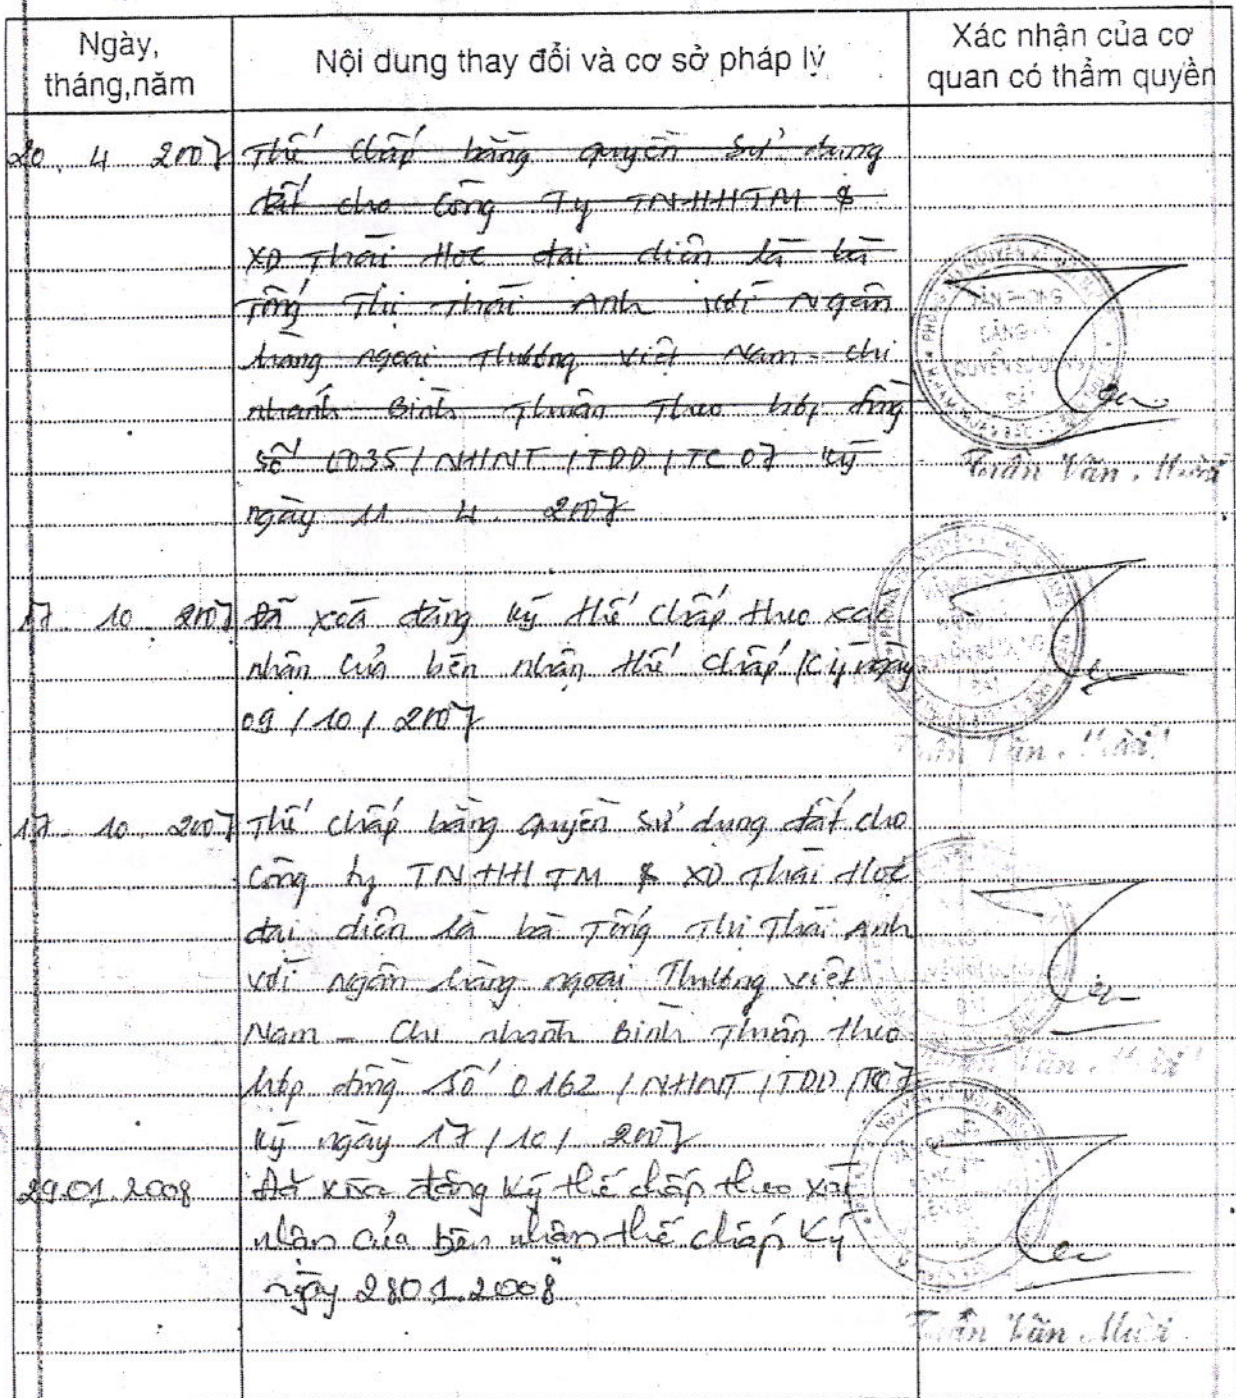 Ngày,
tháng,năm
Nội dung thay đổi và cơ sở pháp lý
Xác nhận của cơ
quan có thẩm quyền
20. 4 2007 Thế chấp bằng quyền sử dụng
đất cho Công Ty TNHHTM &
XD Thái Học đại diện là bà
Tống Thị Thái Anh với Ngân
hàng ngoại Thương Việt Nam - chi
nhánh Bình Thuận Theo hợp đồng
số 0035/NHNT/TDD/TC 07 ký
ngày 11 4. 2007
VĂN PHÒNG
ĐĂNG KÝ
QUYỀN SỬ DỤNG
ĐẤT
Trần Văn Mười
17. 10. 2007 Đã xoá đăng ký thế chấp theo xác
nhận của bên nhận thế chấp ký ngày
09/10/2007
Trần Văn Mười
17. 10. 2007 Thế chấp bằng quyền sử dụng đất cho
Công ty TNHH TM & XD Thái Học
đại diện là bà Tống Thị Thái Anh
với ngân hàng ngoại Thương Việt
Nam - Chi nhánh Bình Thuận theo
hợp đồng số 0162/NHNT/TDD/TC07
ký ngày 17/10/2007
Trần Văn Mười
29.01.2008 Đã xóa đăng ký thế chấp theo xác
nhận của bên nhận thế chấp ký
ngày 28.01.2008
Trần Văn Mười